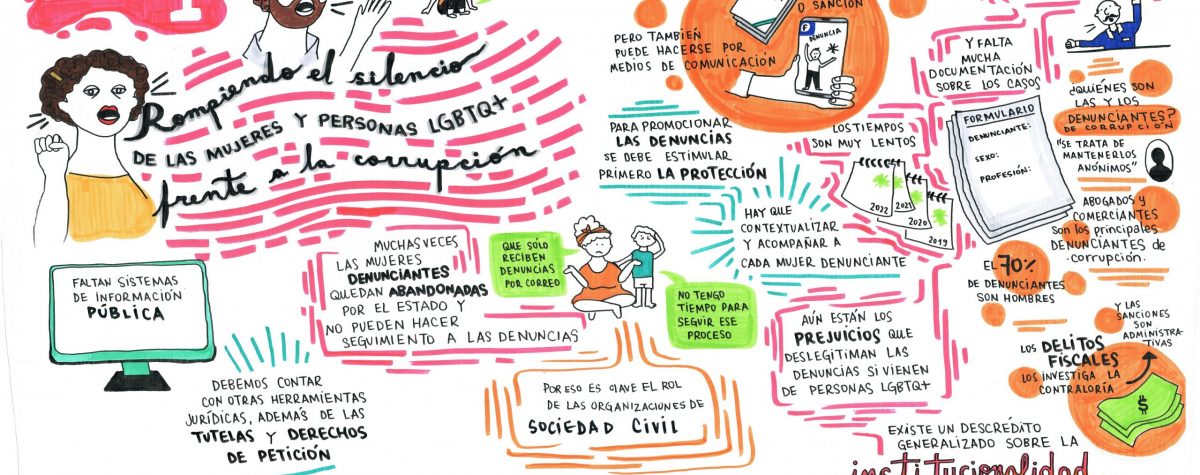 Rompiendo el silencio
DE LAS MUJERES Y PERSONAS LGBTQ+
frente a la corrupción
FALTAN SISTEMAS
DE INFORMACIÓN
PÚBLICA
DEBEMOS CONTAR
CON OTRAS HERRAMIENTAS
JURÍDICAS, ADEMÁS DE LAS
TUTELAS Y DERECHOS
DE PETICIÓN
MUCHAS VECES
LAS MUJERES
DENUNCIANTES
QUEDAN ABANDONADAS
POR EL ESTADO Y
NO PUEDEN HACER
SEGUIMIENTO A LAS DENUNCIAS
QUE SÓLO
RECIBEN
DENUNCIAS
POR CORREO
NO TENGO
TIEMPO PARA
SEGUIR ESE
PROCESO
POR ESO ES CLAVE EL ROL
DE LAS ORGANIZACIONES DE
SOCIEDAD CIVIL
O SANCIÓN
PERO TAMBIÉN
PUEDE HACERSE POR
MEDIOS DE COMUNICACIÓN
F
DENUNCIA
PARA PROMOCIONAR
LAS DENUNCIAS
SE DEBE ESTIMULAR
PRIMERO LA PROTECCIÓN
HAY QUE
CONTEXTUALIZAR
Y ACOMPAÑAR A
CADA MUJER DENUNCIANTE
LOS TIEMPOS
SON MUY LENTOS
2022
2021
2020
2019
AÚN ESTÁN LOS
PREJUICIOS QUE
DESLEGITIMAN LAS
DENUNCIAS SI VIENEN
DE PERSONAS LGBTQ+
Y FALTA
MUCHA
DOCUMENTACIÓN
SOBRE LOS CASOS
FORMULARIO
DENUNCIANTE:
SEXO:
PROFESIÓN:
¿QUIÉNES SON
LAS Y LOS
DENUNCIANTES?
DE CORRUPCIÓN
"SE TRATA DE
MANTENERLOS
ANÓNIMOS"
ABOGADOS Y
COMERCIANTES
SON los principales
DENUNCIANTES de
corrupción.
EL 70%
DE DENUNCIANTES
SON HOMBRES
LOS DELITOS
FISCALES
LOS INVESTIGA LA
CONTRALORÍA
Y LAS
SANCIONES
SON
ADMINISTRA-
TIVAS
$
EXISTE UN DESCREDITO
GENERALIZADO SOBRE LA
institucionalidad